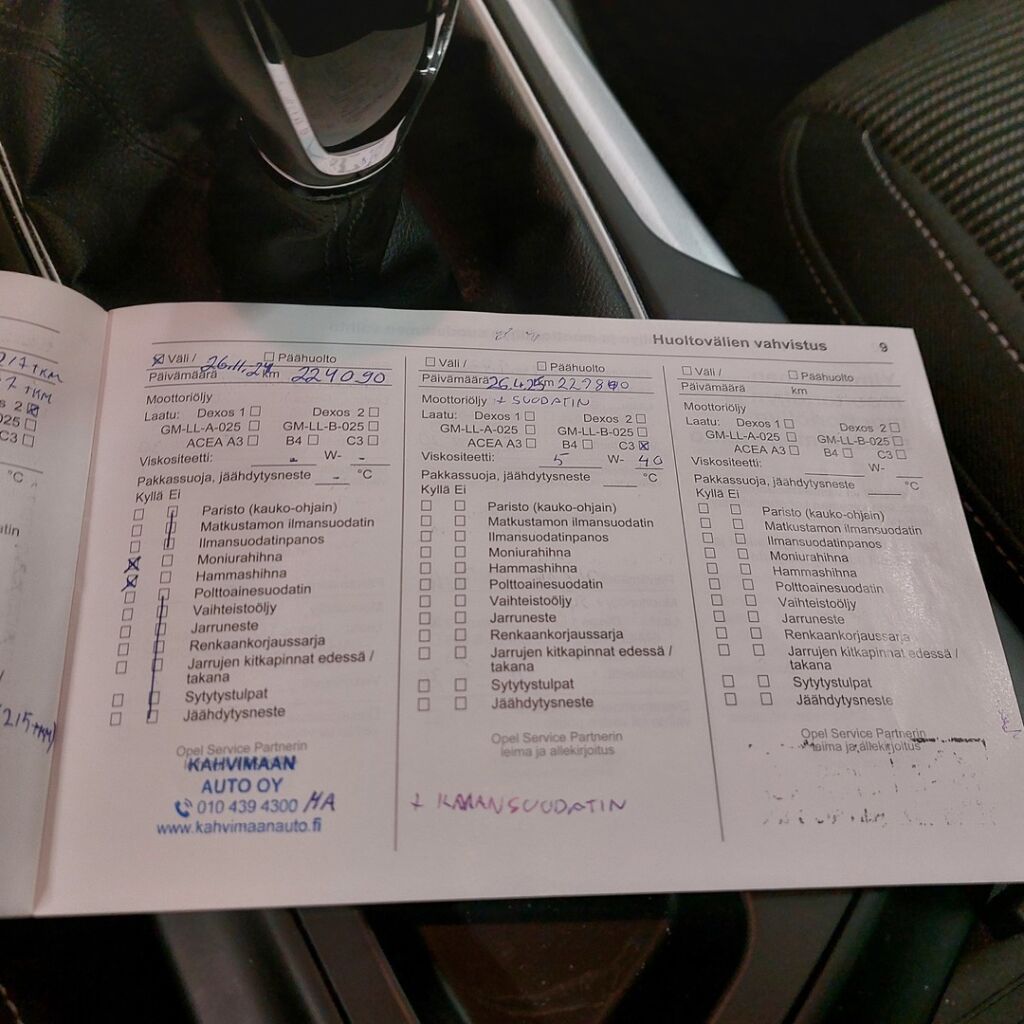 Huoltovälien vahvistus 9
7 TKM
s 2 ☒
025 ☐
C3 ☐
°C
atin
215 TKM)
☒ Väli / ☐ Päähuolto
Päivämäärä 26.11.24 km 224090
Moottoriöljy
Laatu: Dexos 1 ☐ Dexos 2 ☐
GM-LL-A-025 ☐ GM-LL-B-025 ☐
ACEA A3 ☐ B4 ☐ C3 ☐
Viskositeetti: - W- -
Pakkassuoja, jäähdytysneste - °C
Kyllä Ei
Paristo (kauko-ohjain)
Matkustamon ilmansuodatin
Ilmansuodatinpanos
Moniurahihna
Hammashihna
Polttoainesuodatin
Vaihteistoöljy
Jarruneste
Renkaankorjaussarja
Jarrujen kitkapinnat edessä /
takana
Sytytystulpat
Jäähdytysneste
Opel Service Partnerin
KAHVIMAAN
AUTO OY
010 439 4300 HA
www.kahvimaanauto.fi
☐ Väli / ☐ Päähuolto
Päivämäärä 26.4.25 km
Moottoriöljy + SUODATIN
Laatu: Dexos 1 ☐ Dexos 2 ☐
GM-LL-A-025 ☐ GM-LL-B-025 ☐
ACEA A3 ☐ B4 ☐ C3 ☒
Viskositeetti: 5 W- 40
Pakkassuoja, jäähdytysneste °C
Kyllä Ei
Paristo (kauko-ohjain)
Matkustamon ilmansuodatin
Ilmansuodatinpanos
Moniurahihna
Hammashihna
Polttoainesuodatin
Vaihteistoöljy
Jarruneste
Renkaankorjaussarja
Jarrujen kitkapinnat edessä /
takana
Sytytystulpat
Jäähdytysneste
Opel Service Partnerin
leima ja allekirjoitus
☐ Väli / ☐ Päähuolto
Päivämäärä km
Moottoriöljy
Laatu: Dexos 1 ☐ Dexos 2 ☐
GM-LL-A-025 ☐ GM-LL-B-025 ☐
ACEA A3 ☐ B4 ☐ C3 ☐
Viskositeetti: W-
Pakkassuoja, jäähdytysneste °C
Kyllä Ei
Paristo (kauko-ohjain)
Matkustamon ilmansuodatin
Ilmansuodatinpanos
Moniurahihna
Hammashihna
Polttoainesuodatin
Vaihteistoöljy
Jarruneste
Renkaankorjaussarja
Jarrujen kitkapinnat edessä /
takana
Sytytystulpat
Jäähdytysneste
Opel Service Partnerin
leima ja allekirjoitus